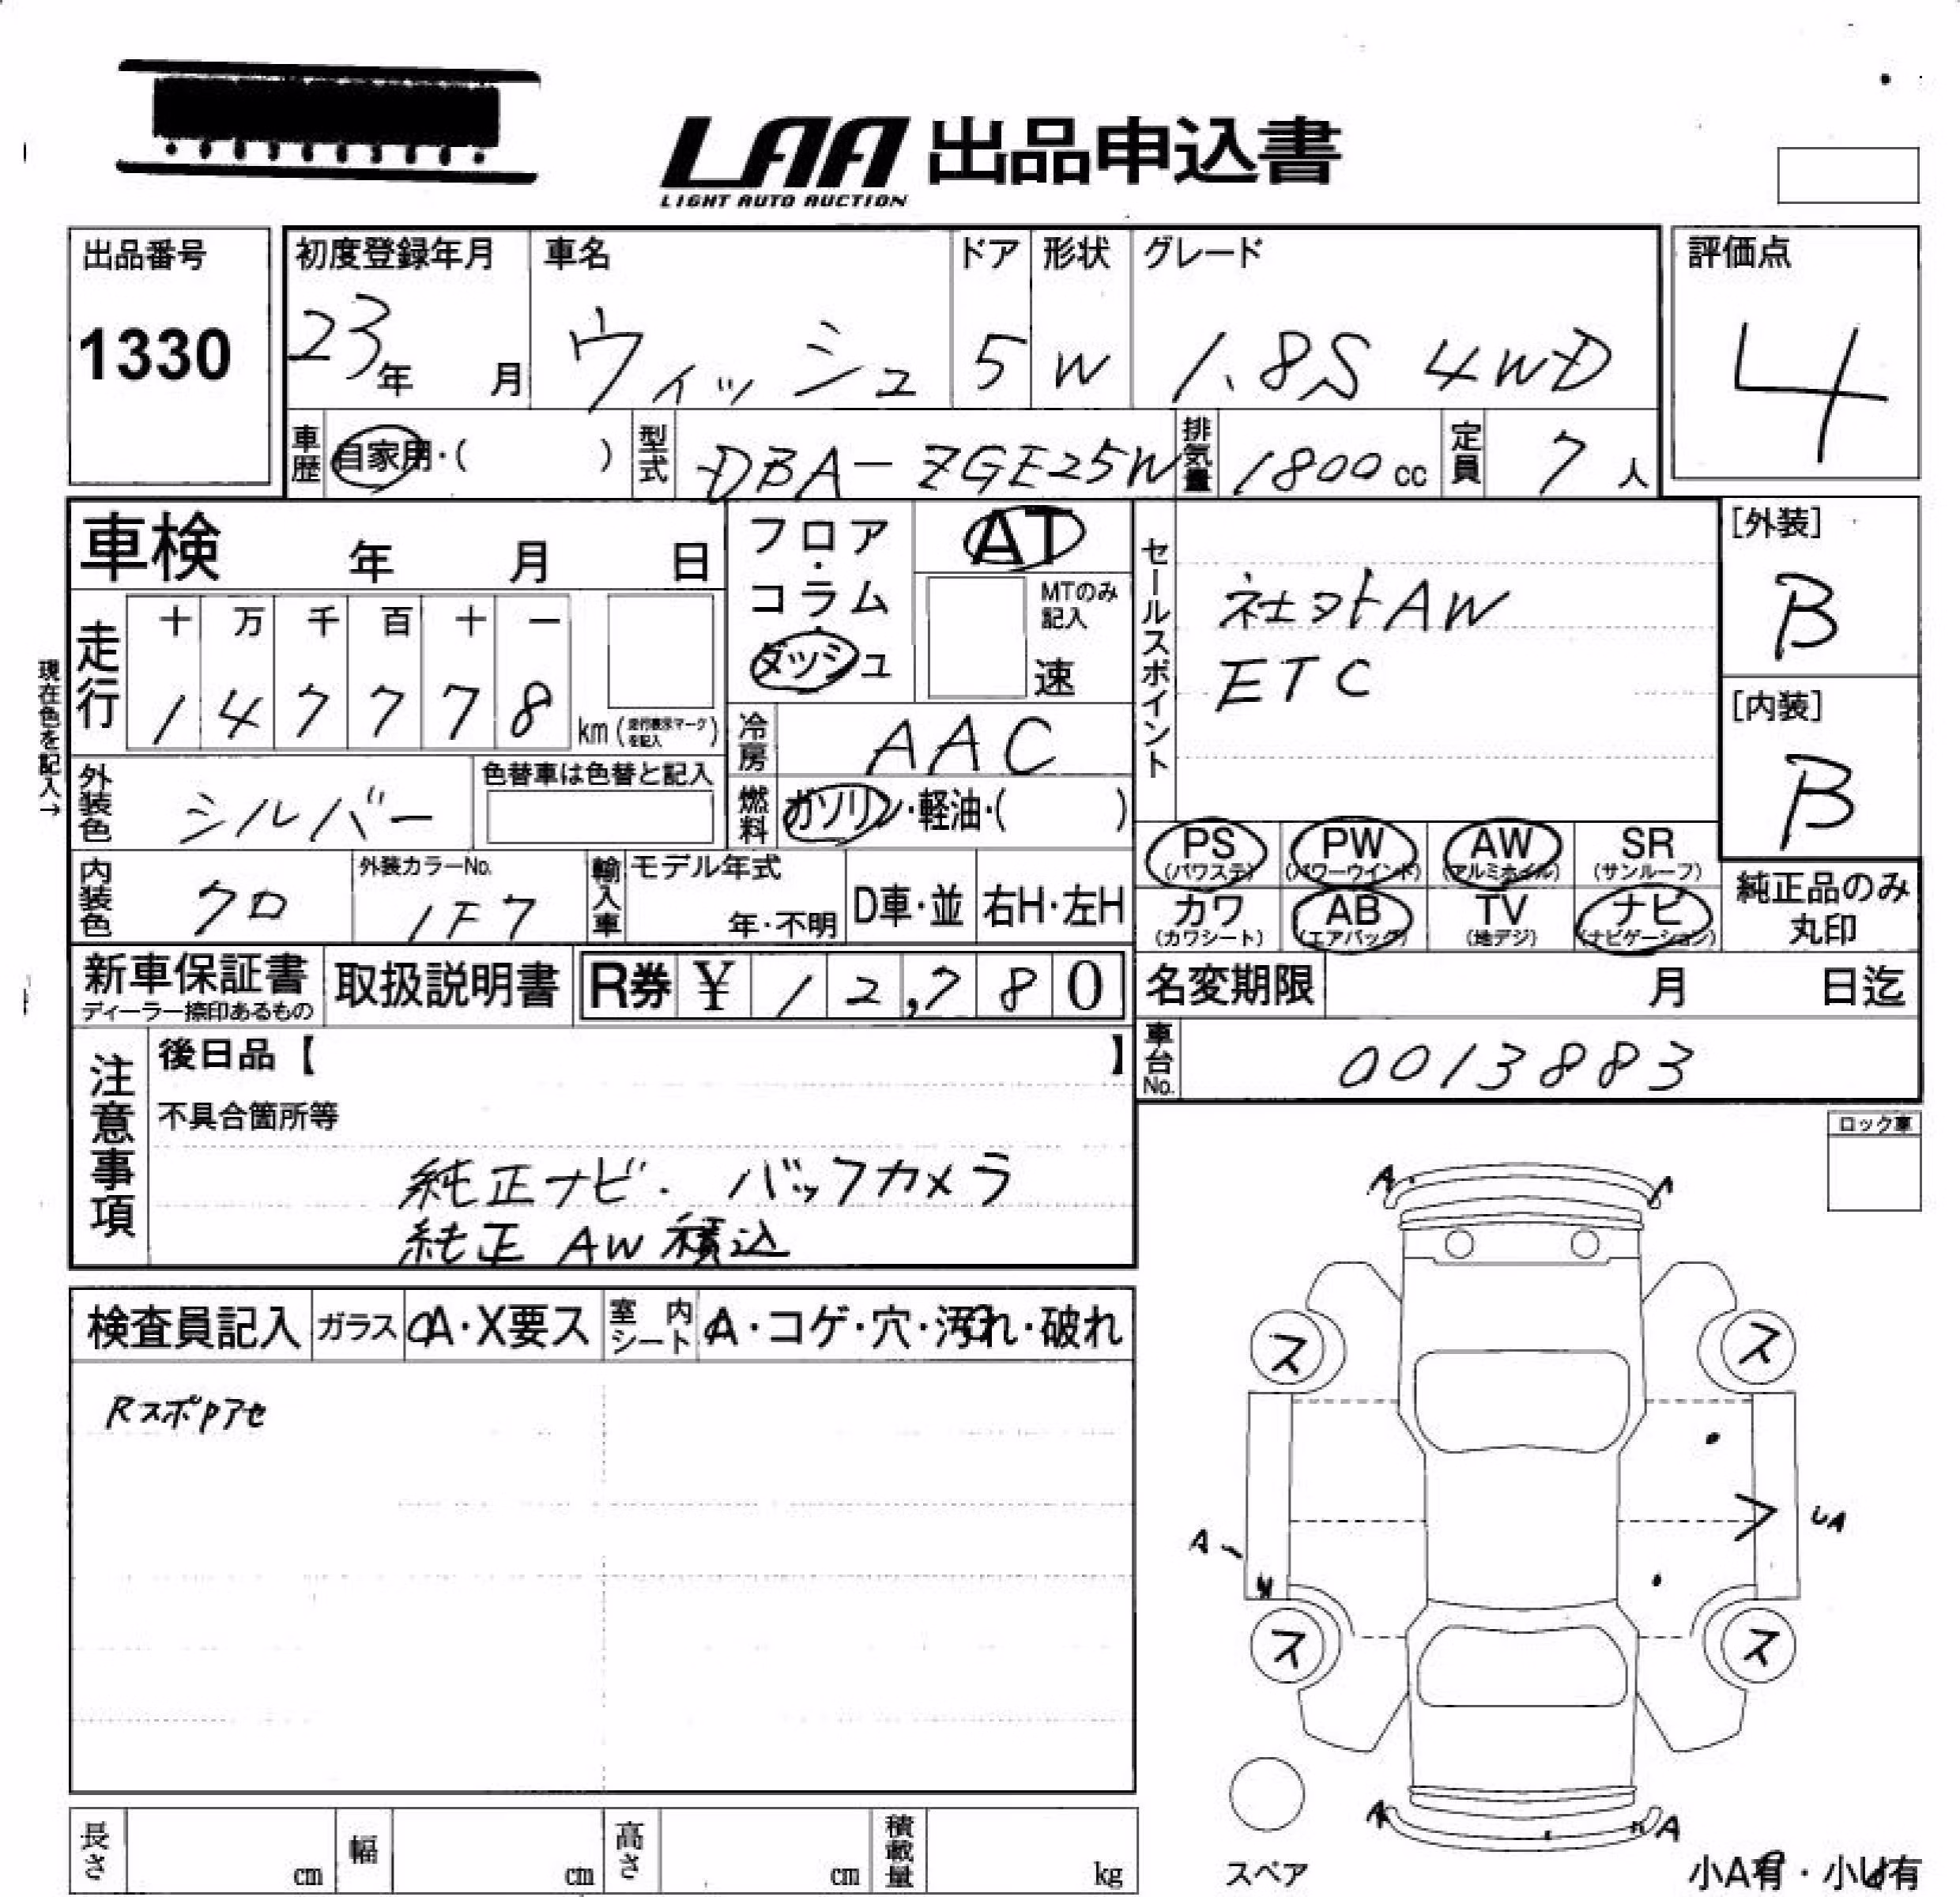 LAA 出品申込書
LIGHT AUTO AUCTION
出品番号
1330
初度登録年月
23年 月
車名
ウィッシュ
ドア
5
形状
W
グレード
1.8S 4WD
評価点
4
車歴 自家用・( )
型式 DBA-ZGE25W
排気量 1800cc
定員 7人
車検 年 月 日
フロア・コラム・ダッシュ
AT
MTのみ記入
速
セールスポイント
社外AW
ETC
[外装]
B
[内装]
B
現在色を記入→
走行
十 万 千 百 十 一
1 4 7 7 7 8 km (走行表示マークを記入)
冷房 AAC
燃料 ガソリン・軽油・( )
外装色 シルバー
色替車は色替と記入
内装色 クロ
外装カラーNo.
1F7
輸入車 モデル年式
年・不明
D車・並 右H・左H
PS (パワステ)
PW (パワーウインド)
AW (アルミホイル)
SR (サンルーフ)
カワ (カワシート)
AB (エアバッグ)
TV (地デジ)
ナビ (ナビゲーション)
純正品のみ
丸印
新車保証書
ディーラー捺印あるもの
取扱説明書
R券 ¥ 1 2,7 8 0
名変期限 月 日迄
車台No. 0013883
注意事項
後日品【 】
不具合箇所等
純正ナビ. バックカメラ
純正 AW 積込
ロック車
検査員記入 ガラス A・X要ス 室内シート A・コゲ・穴・汚れ・破れ
A A
ス ス
A UA
ス ス
A A
スペア
小A有・小U有
長さ cm 幅 cm 高さ cm 積載量 kg